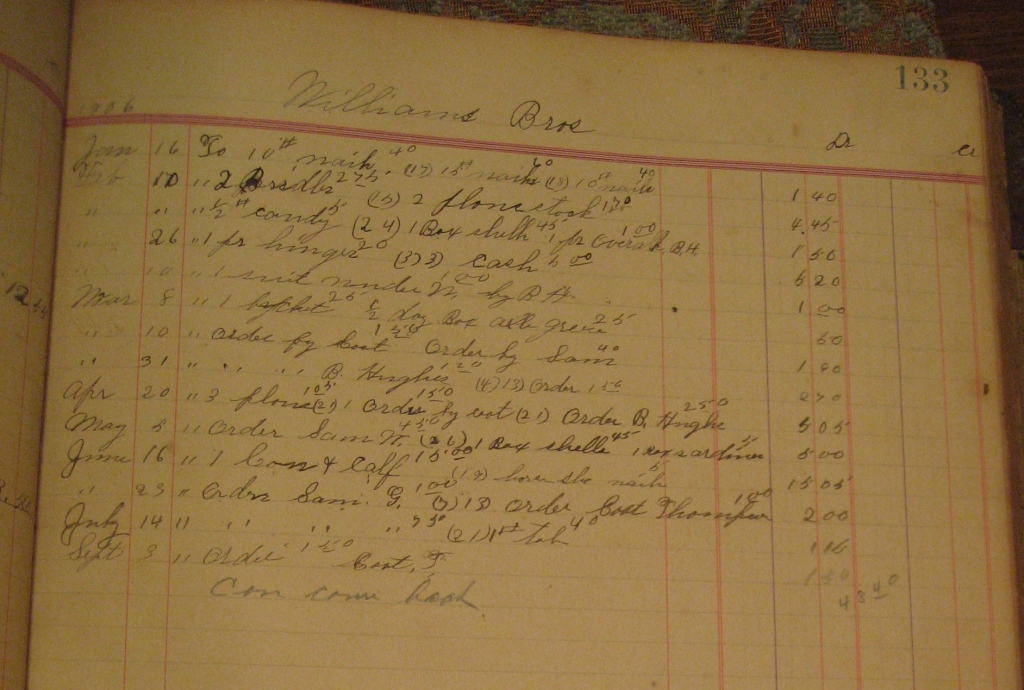 133
1906 Williams Bros Dr Cr
Jan 16 To 10 lb nails 40 (17) 15 lb nails 60 (18) 10 lb nails 40 1 40
Feb 10 " 2 275 (15) 2 170 4.45
" " " ½ lb candy 5 (24) 1 Box shells 45 1 pr overalls 1 00 B.H. 1 50
" 26 " 1 pr hinges 20 (3) 3) cash 5 00 5 20
" 10 " 1 suit under 1 00 by B H. 1 00
Mar 8 " 1 25 ½ doz Box axle grece 25 50
" 10 " Order by Coot 1 50 Order by Sam 40 1 90
" 31 " " " B. Hughes 1 20 (4) 13) Order 1 50 2 70
Apr 20 " 3 105 (21) 1 Order 150 by coot (21) Order B. Hughe 250 5 05
May 5 " Order Sam 450 (26) 1 Box shells 45 1 Box sardines 5 5 00
June 16 " 1 Cow & Calf 15.00 (19) horse sho nails 5 15 05
" 23 " Order Sam. G. 1 00 Order Coot Thompson 1 00 2 00
July 14 " " " " 75 (21) 1 lb tob 40 1 15
Sept 3 " Order 1 50 Coot. T 1 50
Cow come back 43 40